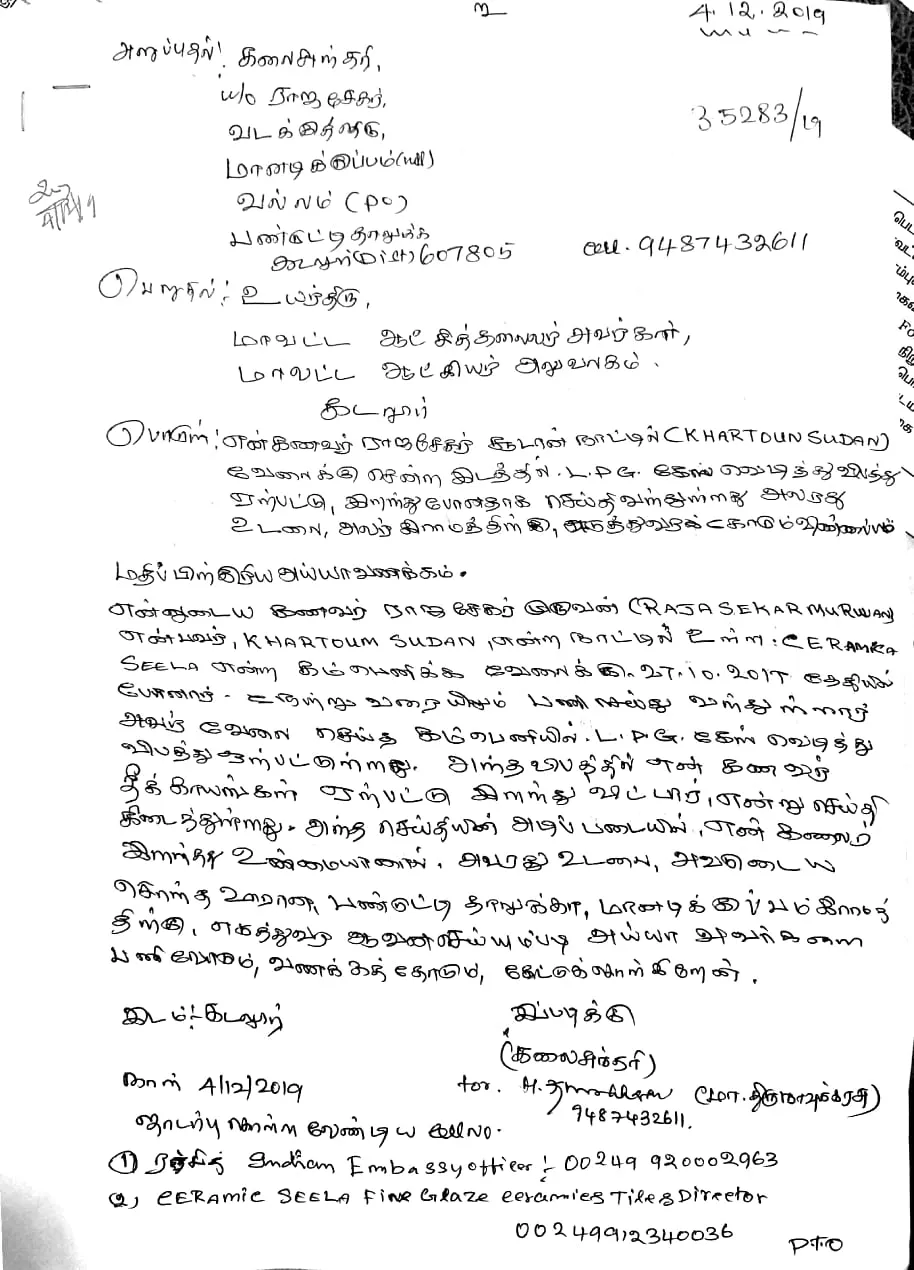 4.12.2019
அனுப்புதல்: கலைசுந்தரி,
w/o ராஜசேகர்,
35283/19
வடக்குத்தெரு,
மானடிக்குப்பம் (vill)
வல்லம் (PO)
பண்ருட்டி தாலுக்கா
கடலூர் (Dist) 607805 cell. 9487432611
பெறுதல்: உயர்திரு,
மாவட்ட ஆட்சித்தலைவர் அவர்கள்,
மாவட்ட ஆட்சியர் அலுவலகம்.
கடலூர்
பொருள்: என் கணவர் ராஜசேகர் சூடான் நாட்டில் (KHARTOUN SUDAN)
வேலைக்கு சென்ற இடத்தில். L.P.G. கேஸ் வெடித்து விபத்து
ஏற்பட்டு, இறந்து போனதாக செய்தி வந்துள்ளது அவரது
உடலை, அவர் கிராமத்திற்கு,
மதிப்பிற்குரிய அய்யா வணக்கம்.
என்னுடைய கணவர் ராஜசேகர் முருவன் (RAJASEKAR MURUVAN)
என்பவர், KHARTOUM SUDAN, என்ற நாட்டில் உள்ள: CERAMICA
SEELA என்ற கம்பெனிக்கு வேலைக்கு. 27.10.2017 தேதியில்
போனார். இன்று வரையிலும் பணி செய்து வந்துள்ளார்
அவர் வேலை செய்த கம்பெனியில். L.P.G. கேஸ் வெடித்து
விபத்து ஏற்பட்டுள்ளது. அந்த விபத்தில் என் கணவர்
தீக்காயங்கள் ஏற்பட்டு இறந்து விட்டார், என்று செய்தி
கிடைத்துள்ளது. அந்த செய்தியின் அடிப்படையில், என் கணவர்
இறந்தது உண்மையானால். அவரது உடலை, அவருடைய
சொந்த ஊரான, பண்ருட்டி தாலுக்கா, மானடிக்குப்பம் கிராமத்
திற்கு, எடுத்துவர ஆவன செய்யும்படி அய்யா அவர்களை
பணிவோடும், வணக்கத்தோடும், கேட்டுக்கொள்கிறேன்.
இடம்: கடலூர் இப்படிக்கு
(கலைசுந்தரி)
நாள் 4/12/2019 for. (மா. திருநாவுக்கரசு)
9487432611.
தொடர்பு கொள்ள வேண்டிய
① Indian Embassy officer:- 00249 920002963
2, CERAMIC SEELA Fine Glaze ceramics Tiles Director
00249912340036
P.T.O